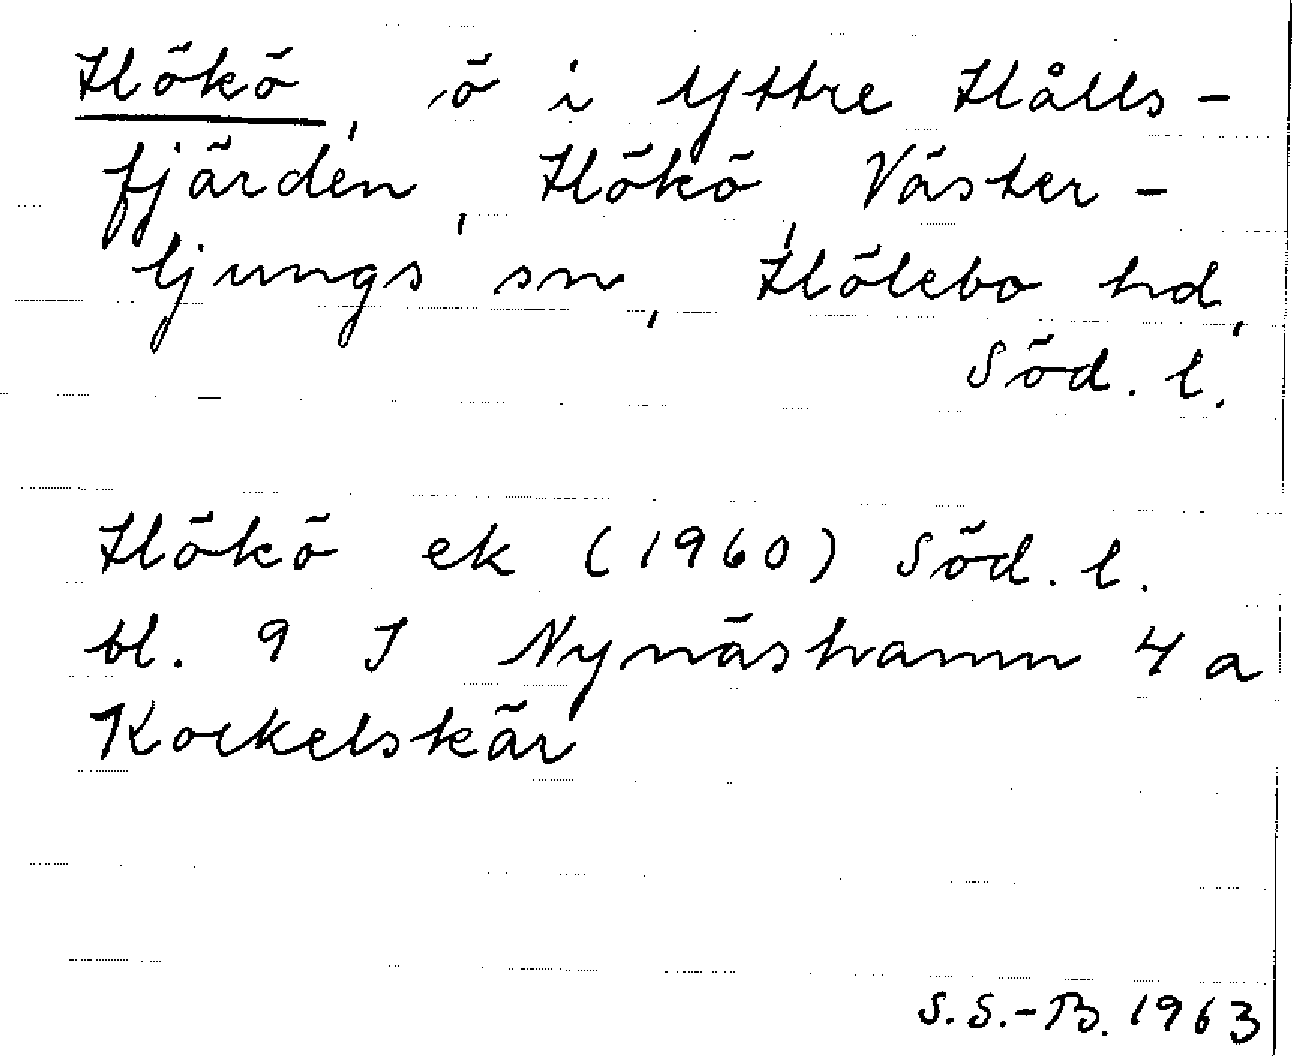 Hökö, ö i Yttre Hålls-
fjärden, Hökö, Väster-
ljungs sn, Hölebo hd,
Söd. l.
Hökö ek (1960) Söd. l.
bl. 9 I Nynäshamn 4 a
Kockelskär
S.S.-B. 1963